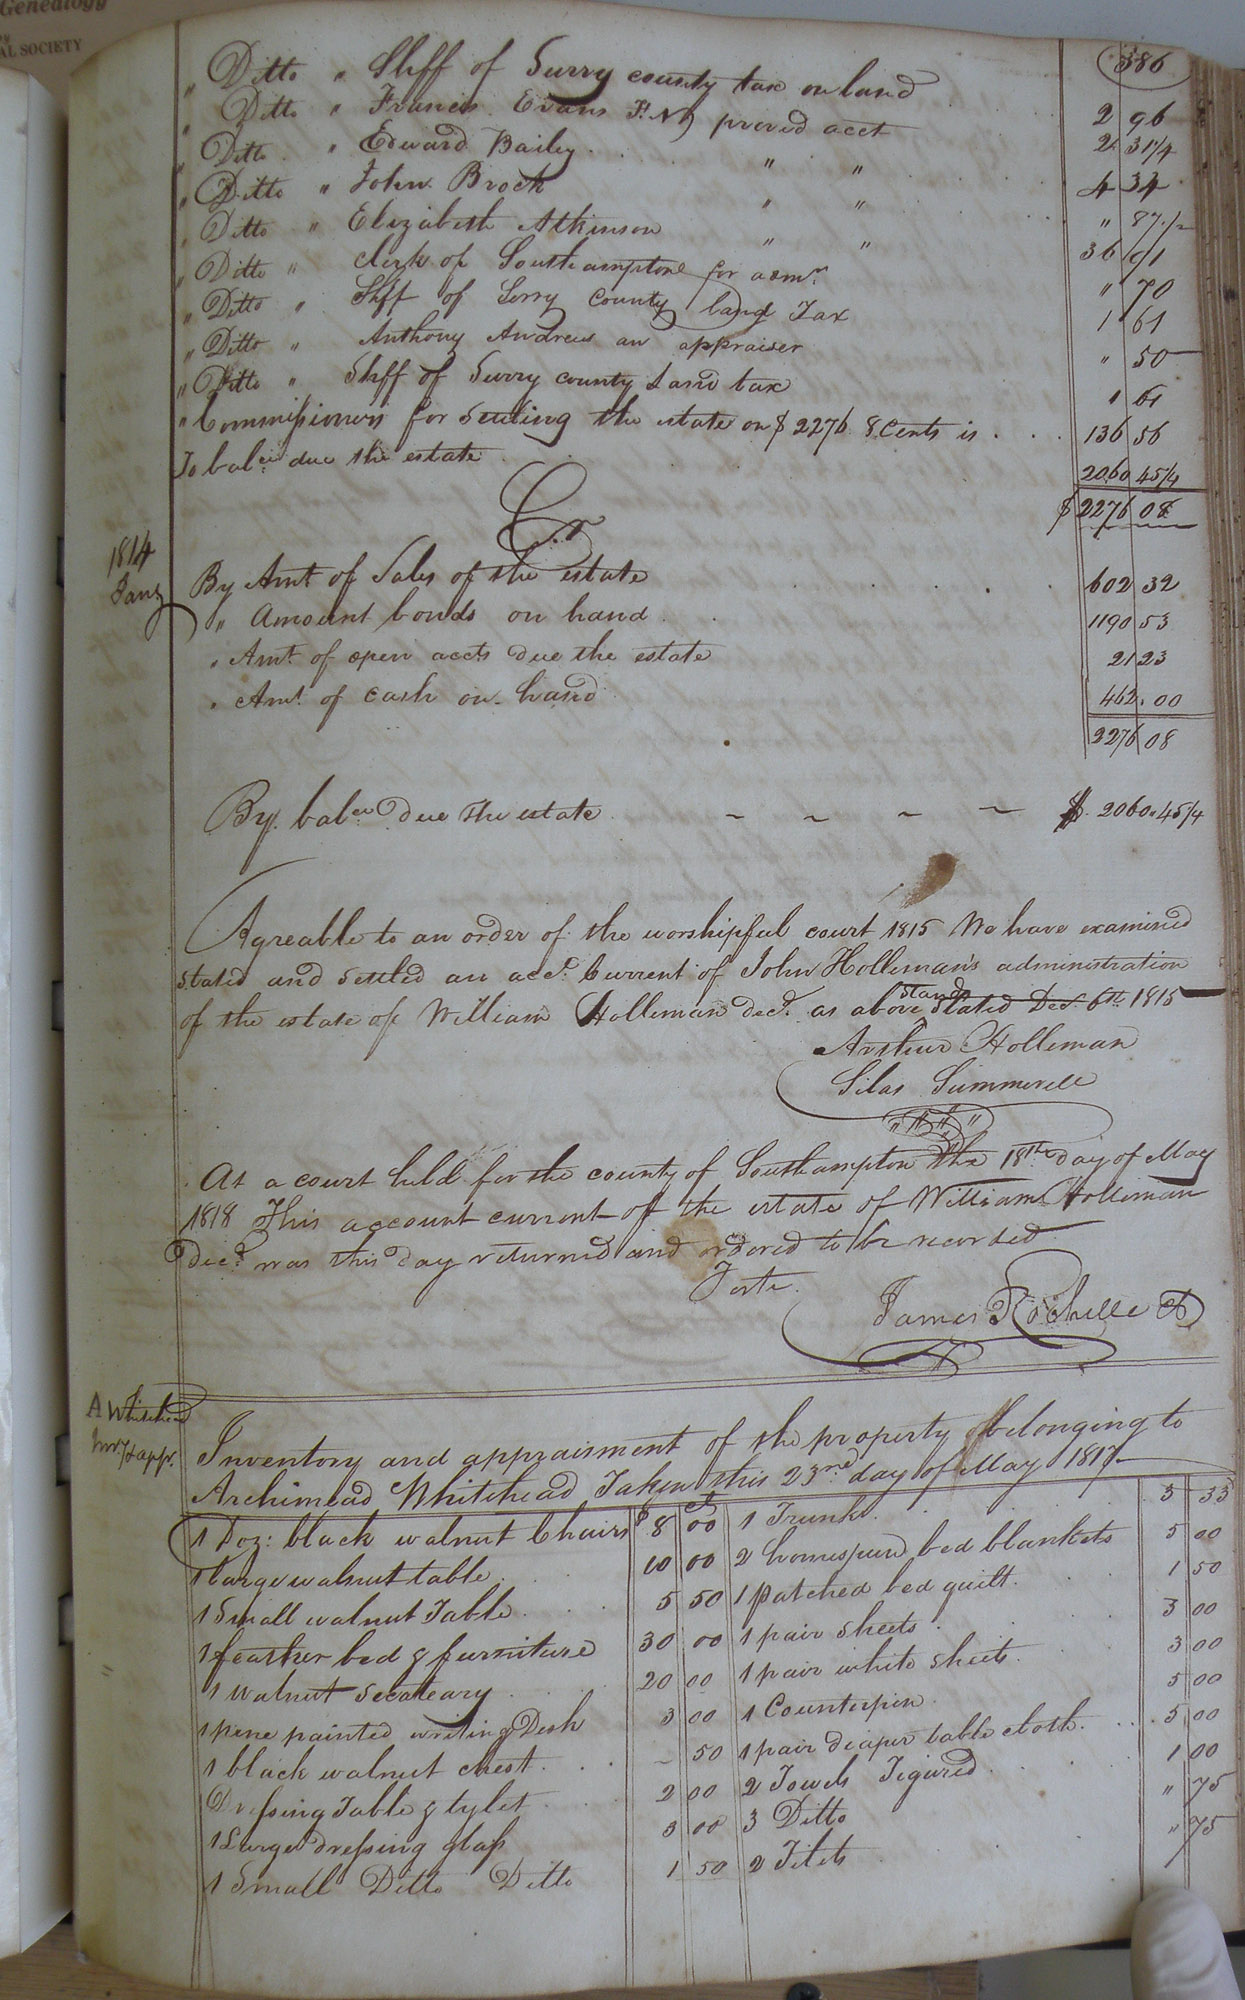 Genealogy
AL SOCIETY
386
" Ditto " Shff of Surry county tax on land 2 96
" Ditto " Francis Evans proved acct 2 31¼
" Ditto " Edward Bailey " " 4 34
" Ditto " John Brock " " " 87½
" Ditto " Elizabeth Atkinson " " 36 91
" Ditto " clerk of Southampton for admr. " 70
" Ditto " Shff of Sorry County land Tax 1 61
" Ditto " Anthony Andrews an appraiser " 50
" Ditto " Shff of Surry county Land tax 1 61
" Commissioners for Settling the estate on $2276. 8 Cents is 136 56
To balce due the estate 2060 45¼
$ 2276 08
Cr
1814
Jany
By Amt of Sales of the estate 602 32
" Amount bonds on hand 1190 53
" Amt. of open accts due the estate 21 23
" Amt. of cash on hand 462.00
2276 08
By balce due the estate ~ ~ ~ ~ $ 2060.45¼
Agreable to an order of the worshipful court 1815 We have examined
stated and settled an acct. Current of John Holleman's administration
of the estate of William Holleman decd. as above stand stated Decr 6th 1815
Arthur Holleman
Silas Summerell
At a court held for the county of Southampton the 18th day of May
1818 This account current of the estate of William Holleman
Decd. was this day returned and ordered to be recorded
Teste.
James Rochelle
A Whitehead
Inv. & appr.
Inventory and appraisment of the property belonging to
Archimead Whitehead Taken this 23rd day of May 1817
1 Doz: black walnut Chairs $ 8 cts 00 1 Trunk 3 33
1 large walnut table 10 00 2 homespun bed blankets 5 00
1 Small walnut Table 5 50 1 patched bed quilt 1 50
1 feather bed & furniture 30 00 1 pair sheets 3 00
1 walnut Secateary 20 00 1 pair white sheets 3 00
1 pine painted writing Desk 3 00 1 Counterpin 5 00
1 black walnut chest 50 1 pair diaper table cloth 5 00
Dressing Table & tylet 2 00 2 Towels Figured 1 00
1 Large dressing glass 3 00 3 Ditto " 75
1 Small Ditto Ditto 1 50 2 Tilets " 75